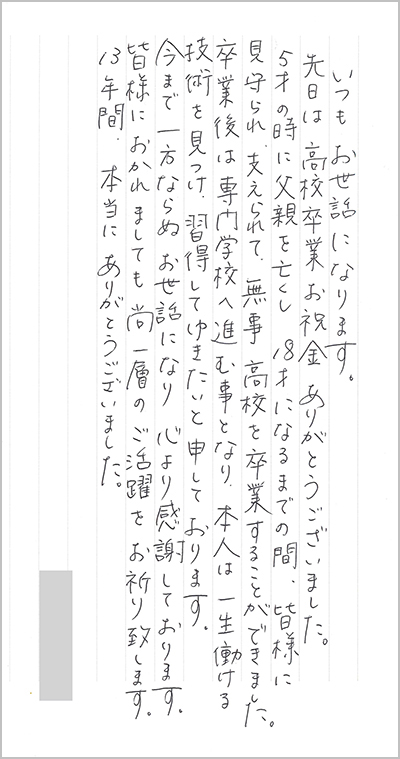 いつもお世話になります。
先日は高校卒業お祝金ありがとうございました。
5才の時に父親を亡くし 18才になるまでの間、皆様に
見守られ、支えられて、無事 高校を卒業することができました。
卒業後は専門学校へ進む事となり、本人は一生働ける
技術を見つけ、習得してゆきたいと申しております。
今まで一方ならぬお世話になり 心より感謝しております。
皆様におかれましても尚一層のご活躍をお祈り致します。
13年間、本当にありがとうございました。